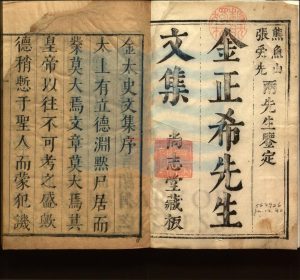 熊魚山
張受先
兩先生鑒定
金正希先生
文集
尚志堂藏板
金太史文集序
太上有立德淵黙尸居而
榮莫大焉文章莫大焉其
皇帝以往不可考之盛歟
德稍慙于聖人而蒙犯譏